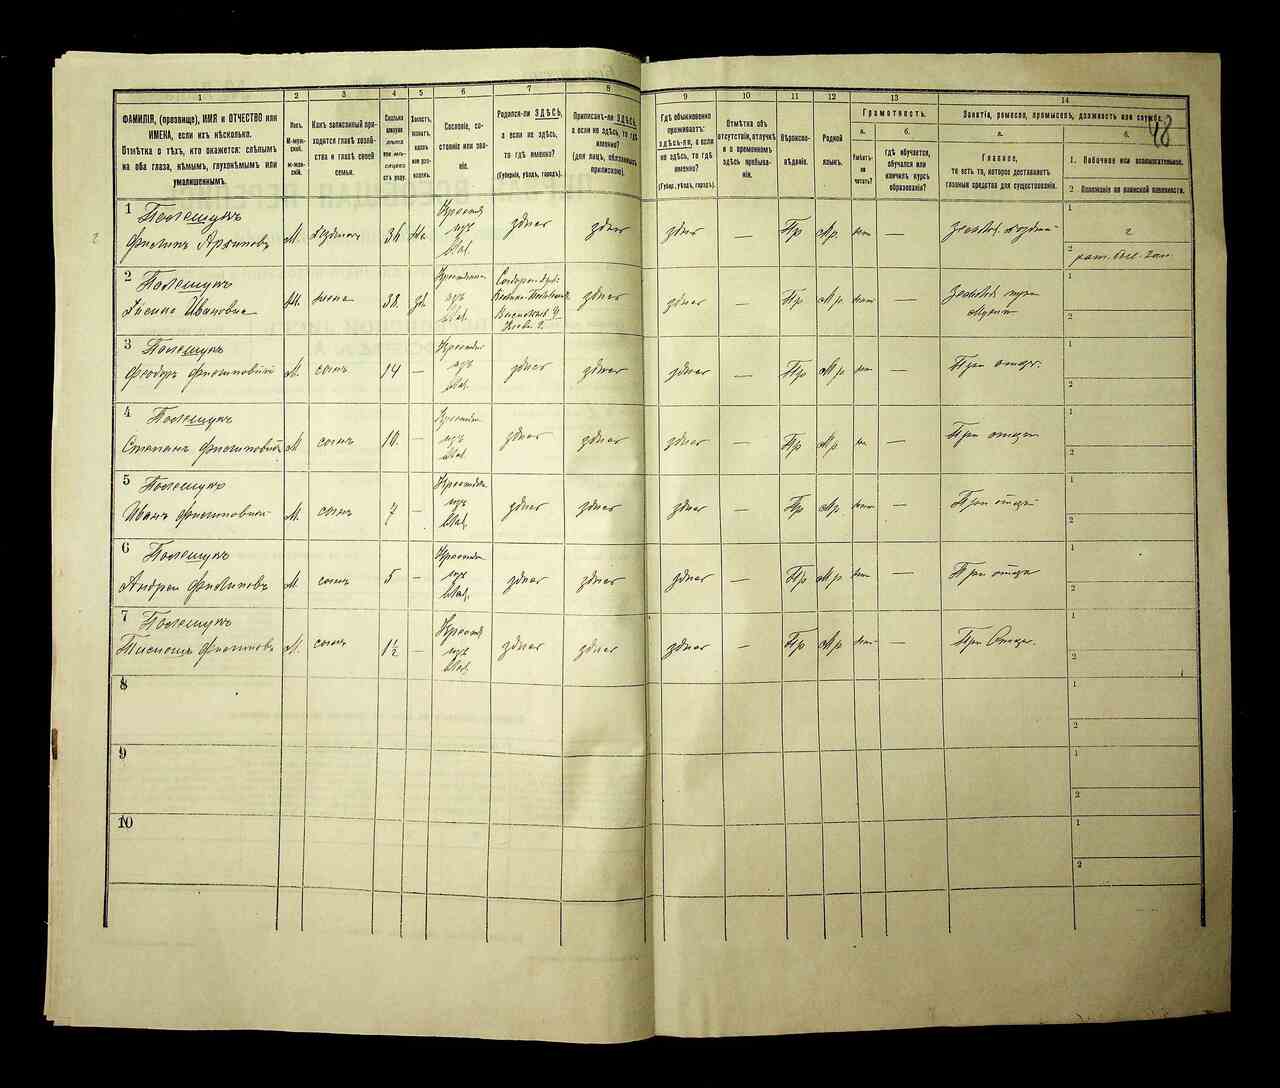 48
1
2
3
4
5
6
7
8
9
10
11
12
13
14
ФАМИЛІЯ, (прозвище), ИМЯ и ОТЧЕСТВО или
ИМЕНА, если ихъ нѣсколько.
Отмѣтка о тѣхъ, кто окажется: слѣпымъ
на оба глаза, нѣмымъ, глухонѣмымъ или
умалишеннымъ.
Полъ.
М-муж-
ской.
Ж-жен-
скій.
Какъ записанный при-
ходится главѣ хозяй-
ства и главѣ своей
семьи.
Сколько
минуло
лѣтъ
или мѣ-
сяцевъ
отъ роду.
Холостъ,
женатъ,
вдовъ
или раз-
веденъ.
Сословіе, со-
стояніе или зва-
ніе.
Родился-ли ЗДѢСЬ,
а если не здѣсь,
то гдѣ именно?
(Губернія, уѣздъ, городъ).
Приписанъ-ли ЗДѢСЬ,
а если не здѣсь, то гдѣ
именно?
(для лицъ, обязанныхъ
припискою).
Гдѣ обыкновенно
проживаетъ:
здѣсь-ли, а если
не здѣсь, то гдѣ
именно?
(Губер., уѣздъ, городъ).
Отмѣтка объ
отсутствіи, отлучкѣ
и о временномъ
здѣсь пребыва-
ніи.
Вѣроиспо-
вѣданіе.
Родной
языкъ.
Грамотность.
а.
Умѣетъ-
ли
читать?
б.
гдѣ обучается,
обучался или
кончилъ курсъ
образованія?
Занятіе, ремесло, промыселъ, должность или служба.
а.
Главное,
то есть то, которое доставляетъ
главныя средства для существованія.
б.
1. Побочное или вспомогательное.
2 Положеніе по воинской повинности.
1 Полещукъ
Филипъ Архиповъ М. хозяинъ 36 Крестья изъ здѣсь здѣсь здѣсь — Пр Мр. — 1
2
2 Полещукъ
Ивановна жена 38. изъ здѣсь здѣсь — Пр Мр — 1
2
3 Полещукъ
Феодоръ М. сынъ 14 — изъ здѣсь здѣсь здѣсь — Пр Мр — При отцѣ. 1
2
4 Полещукъ
Степанъ М сынъ 10. — изъ здѣсь здѣсь здѣсь — Пр Мр — При отцѣ 1
2
5 Полещукъ
Иванъ М. сынъ 7 — изъ здѣсь здѣсь здѣсь — Пр Мр. — При отцѣ 1
2
6 Полещукъ
Андрей Филиповъ М сынъ 5 — изъ здѣсь здѣсь здѣсь — Пр Мр — При отцѣ 1
2
7 Полещукъ
Филиповъ М. сынъ 1½ — изъ здѣсь здѣсь здѣсь — Пр Мр — При Отцѣ. 1
2
8 1
2
9 1
2
10 1
2